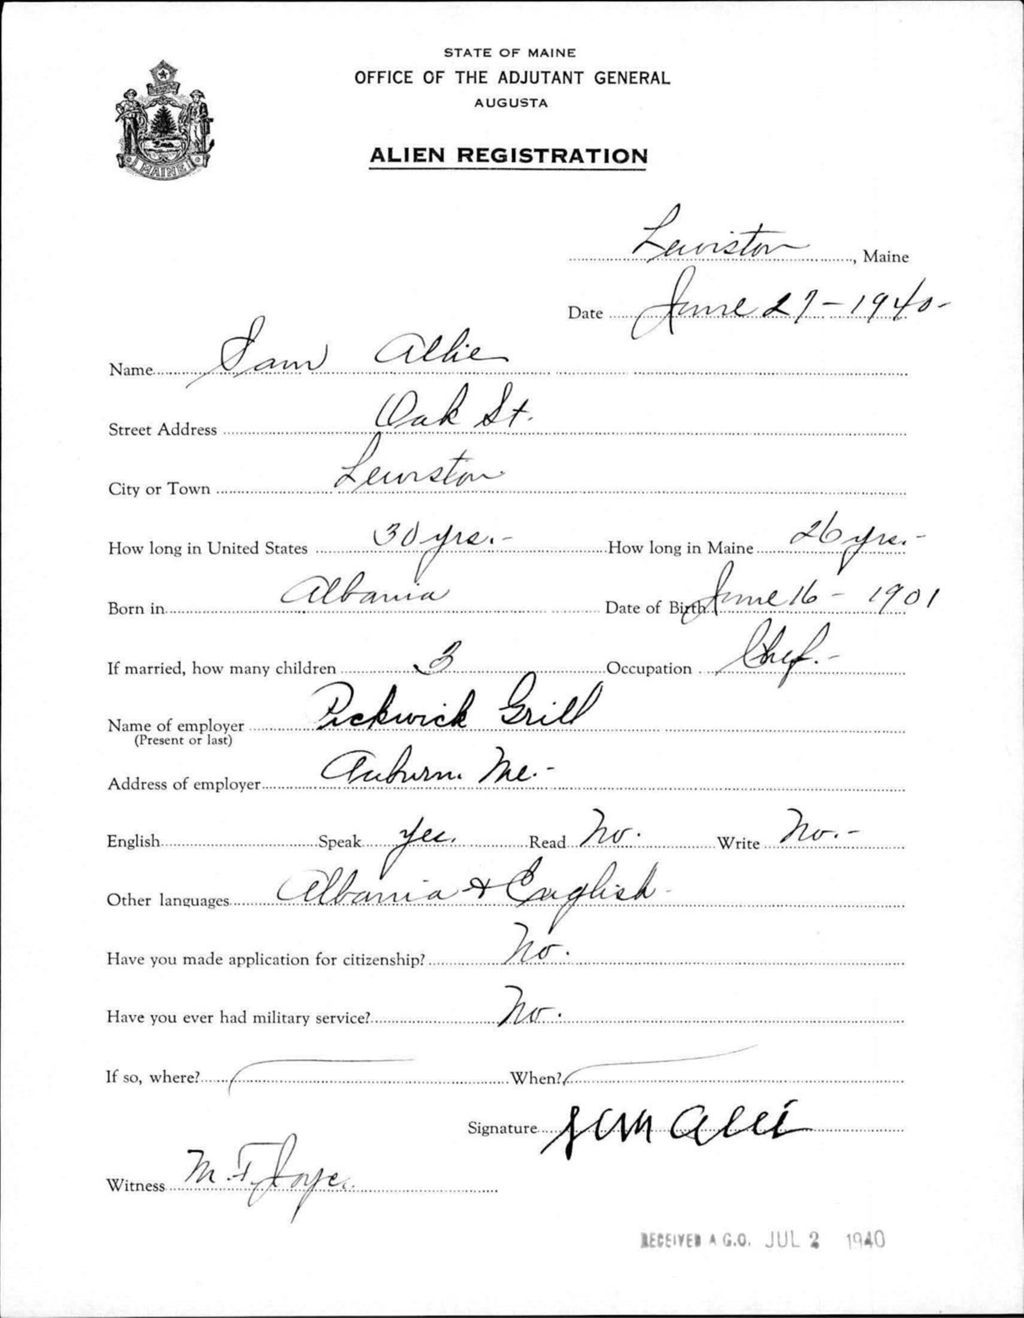 STATE OF MAINE
OFFICE OF THE ADJUTANT GENERAL
AUGUSTA
ALIEN REGISTRATION
MAINE
Lewiston, Maine
Date June 27-1940-
Name Sam Allie
Street Address Oak St.
City or Town Lewiston
How long in United States 30 yrs.- How long in Maine 26 yrs.-
Born in Albania Date of Birth June 16-1901
If married, how many children 3 Occupation Chef.-
Name of employer Pickwick Grill
(Present or last)
Address of employer Auburn. Me.-
English Speak yes. Read No. Write No.-
Other languages Albania + English-
Have you made application for citizenship? No.
Have you ever had military service? No.
If so, where? When?
Signature Sam Alli
Witness M. F. Joyce
RECEIVED A.G.O. JUL 2 1940